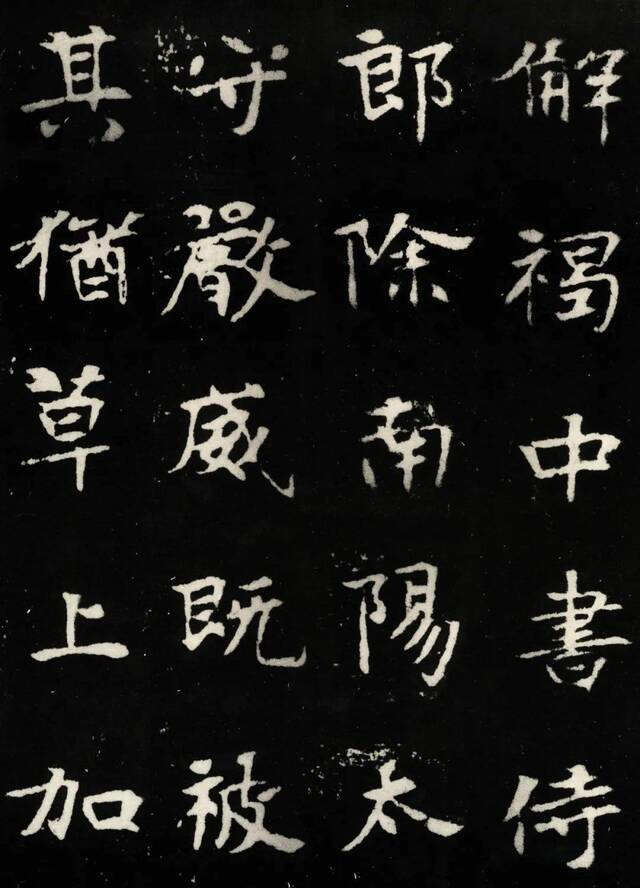 解褐中書侍
郎除南陽太
守嚴威既被
其猶草上加